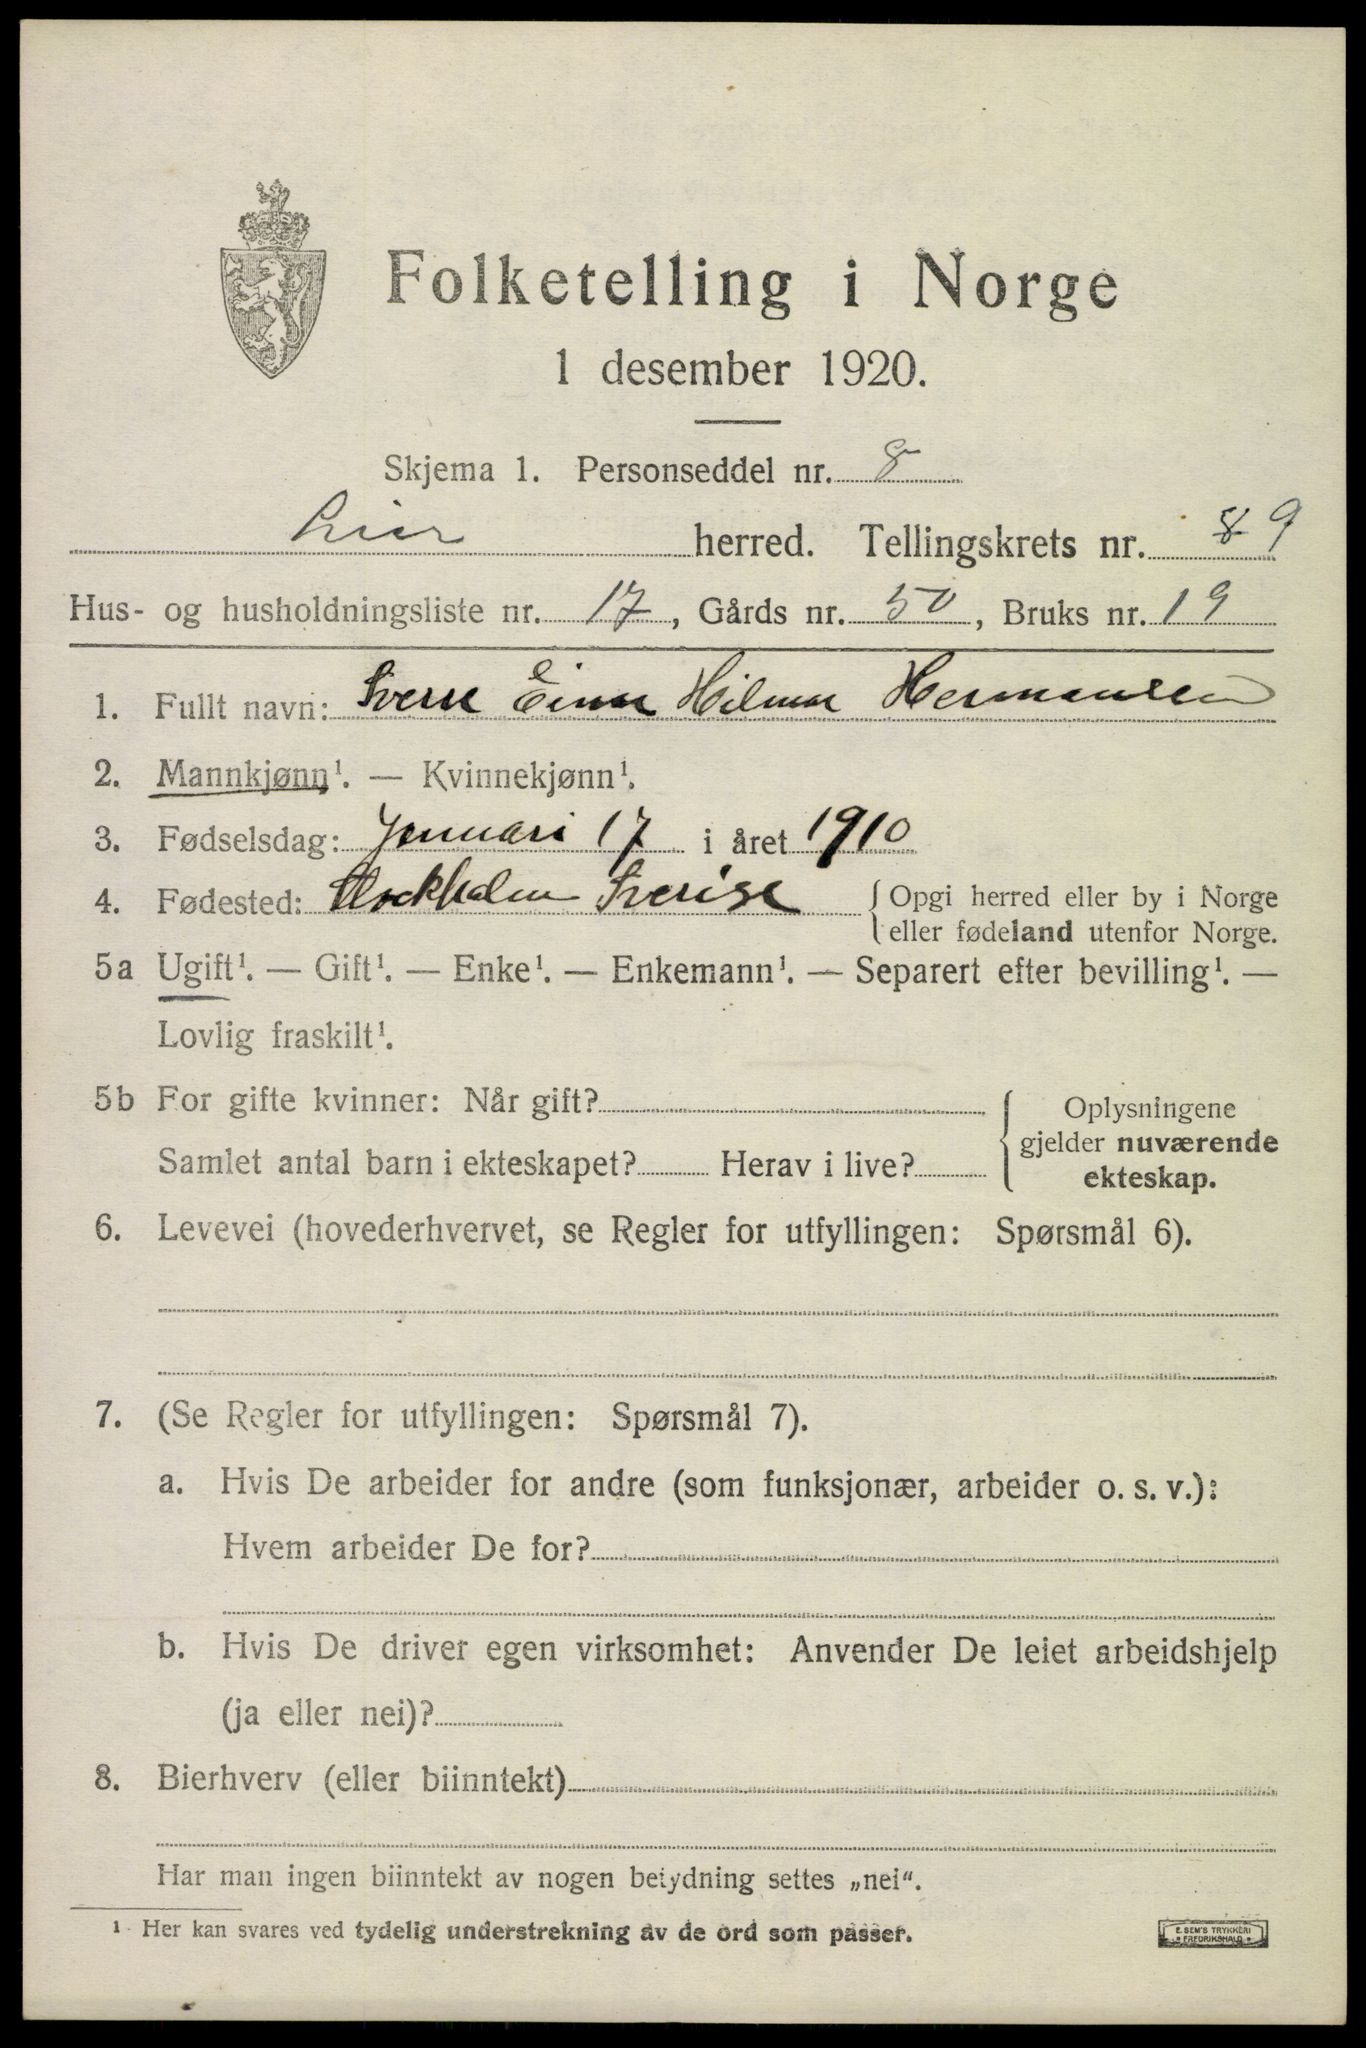 Folketelling i Norge
1 desember 1920.
Skjema 1. Personseddel nr. 8
Lier herred. Tellingskrets nr. 8 9
Hus- og husholdningsliste nr. 17, Gårds nr. 50, Bruks nr. 19
1. Fullt navn: Sverre Einar Hilmar Hermansen
2. Mannkjønn¹. — Kvinnekjønn¹.
3. Fødselsdag: Januari 17 i året 1910
4. Fødested: Stockholm Sverise { Opgi herred eller by i Norge
eller fødeland utenfor Norge.
5a Ugift¹. — Gift¹. — Enke¹. — Enkemann¹. — Separert efter bevilling¹. —
Lovlig fraskilt¹.
5b For gifte kvinner: Når gift? { Oplysningene
gjelder nuværende
Samlet antal barn i ekteskapet? Herav i live?
ekteskap.
6. Levevei (hovederhvervet, se Regler for utfyllingen: Spørsmål 6).
7. (Se Regler for utfyllingen: Spørsmål 7).
a. Hvis De arbeider for andre (som funksjonær, arbeider o. s. v.):
Hvem arbeider De for?
b. Hvis De driver egen virksomhet: Anvender De leiet arbeidshjelp
(ja eller nei)?
8. Bierhverv (eller biinntekt)
Har man ingen biinntekt av nogen betydning settes „nei“.
¹ Her kan svares ved tydelig understrekning av de ord som passer.
E. SEM'S TRYKKERI
FREDRIKSHALD